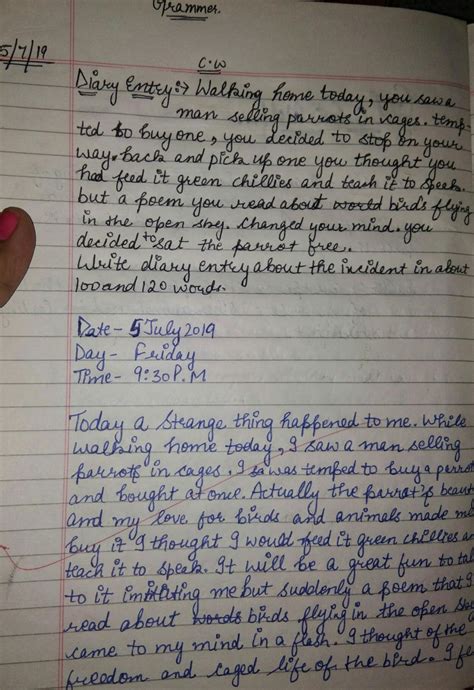 Grammer.
5/7/19
C.W
Diary Entry:→ Walking home today, you saw a
man selling parrots in cages. temp-
ted to buy one, you decided to stop on your
way. back and pick up one you thought you
had feed it green chillies and teach it to speak.
but a poem you read about world birds flying
in the open sky. Changed your mind. you
decided to sat the parrot free.
Write diary entry about the incident in about
100 and 120 words.
Date- 5 July 2019
Day- Friday
Time- 9:30 P.M
Today a strange thing happened to me. While
walking home today, I saw a man selling
parrots in cages. I was temped to buy a parrot
and bought at once. Actually the parrot's beaut
and my love for birds and animals made me
buy it I thought I would feed it green chillies an
teach it to speak. It will be a great fun to tal
to it imitating me but suddonly a poem that I
read about words birds flying in the open sk
came to my mind in a flash. I thought of the
freedom and caged life of the bird. I fe